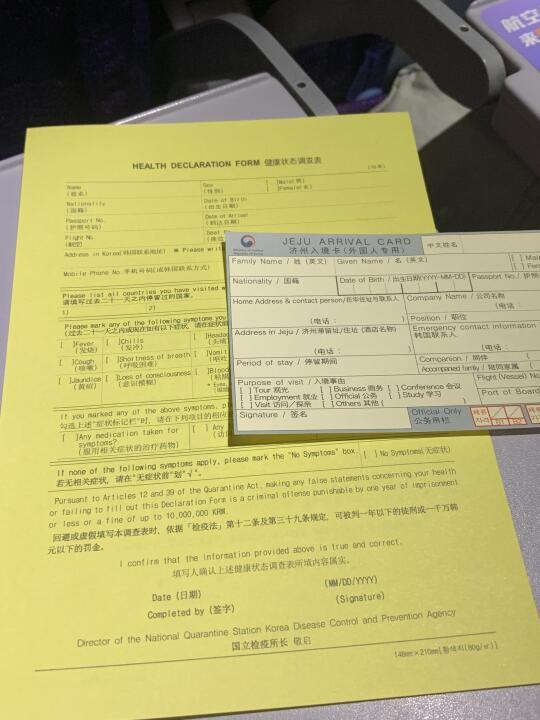 航空
来
HEALTH DECLARATION FORM 健康状态调查表
Name
(姓名)
Sex
(性别)
[ ]Male(男)
[ ]Female(女)
Nationality
(国籍)
Date of Birth
(出生日期)
Passport No.
(护照号码)
Date of Arrival
(到达日期)
Flight No.
(航空)
Seat
Address in Korea(韩国联系地址) ※ Please write
Mobile Phone No.手机号码(或韩国联系方式)
Please list all countries you have visited
请填写过去二十一天之内停留过的国家。
1)
2)
Please mark any of the following symptoms you
(过去二十一天之内或现在如有以下症状, 请在症状前
[ ]Fever
(发烧)
[ ]Chills
(发冷)
[ ]Heada
(头痛
[ ]Cough
(咳嗽)
[ ]Shortness of breath
(呼吸困难)
[ ]Vomit
(呕吐
[ ]Jaundice
(黄疸)
[ ]Loss of consciousness
(意识模糊)
[ ]Blood
If you marked any of the above symptoms, p
勾选上述"症状标记栏"时, 请在下列项目的相应
[ ]Any medication taken for
symptoms?
(服用相关症状的治疗药物)
[ ] Any
(访
If none of the following symptoms apply, please mark the "No Symptoms" box.
若无相关症状, 请在"无症状前"划"√"。
[ ] No Symptoms(无症状)
Pursuant to Articles 12 and 39 of the Quarantine Act, making any false statements concerning your health
or failing to fill out this Declaration Form is a criminal offense punishable by one year of imprisonment
or less or a fine of up to 10,000,000 KRW.
回避或虚假填写本调查表时, 依据「检疫法」第十二条及第三十九条规定, 可被判一年以下的徒刑或一千万韩
元以下的罚金。
I confirm that the information provided above is true and correct.
填写人确认上述健康状态调查表所填内容属实。
Date (日期)
(MM/DD/YYYY)
Completed by (签字)
(Signature)
Director of the National Quarantine Station Korea Disease Control and Prevention Agency
国立检疫所长 敬启
148mm×210mm[황색지(80g/㎡)]
JEJU ARRIVAL CARD
济州入境卡(外国人专用)
中文姓名
Family Name / 姓 (英文)
Given Name / 名 (英文)
[ ] Male
[ ] Fem
Nationality / 国籍
Date of Birth / 出生日期(YYYY-MM-DD)
Passport No./ 护照
Home Address & contact person/在华住址与联系人
(电话 : )
Company Name / 公司名称
(电话 :
Position / 职位
Address in Jeju / 济州滞留址/住址 (酒店名称)
(电话 : )
Emergency contact information
韩国联系人
(电话 :
Period of stay / 停留期间
Companion / 同伴 (
Accompanied family / 陪同家属
Purpose of visit / 入境事由
[ ] Tour 观光
[ ] Business 商务
[ ] Conference 会议
[ ] Employment 就业
[ ] Official 公务
[ ] Study 学习
[ ] Visit 访问／探亲
[ ] Others 其他 (
)
Flight(Vessel) No
Port of Board
Signature / 签名
Official Only
公务用栏
체류
자격